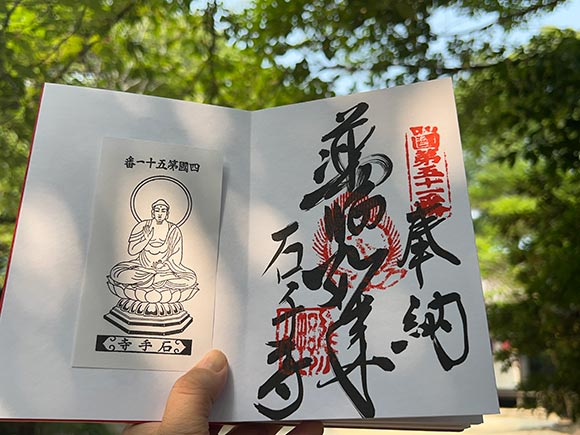 四國第五十一番
石手寺
四國第五十一番
奉納
薬師如来
石手寺